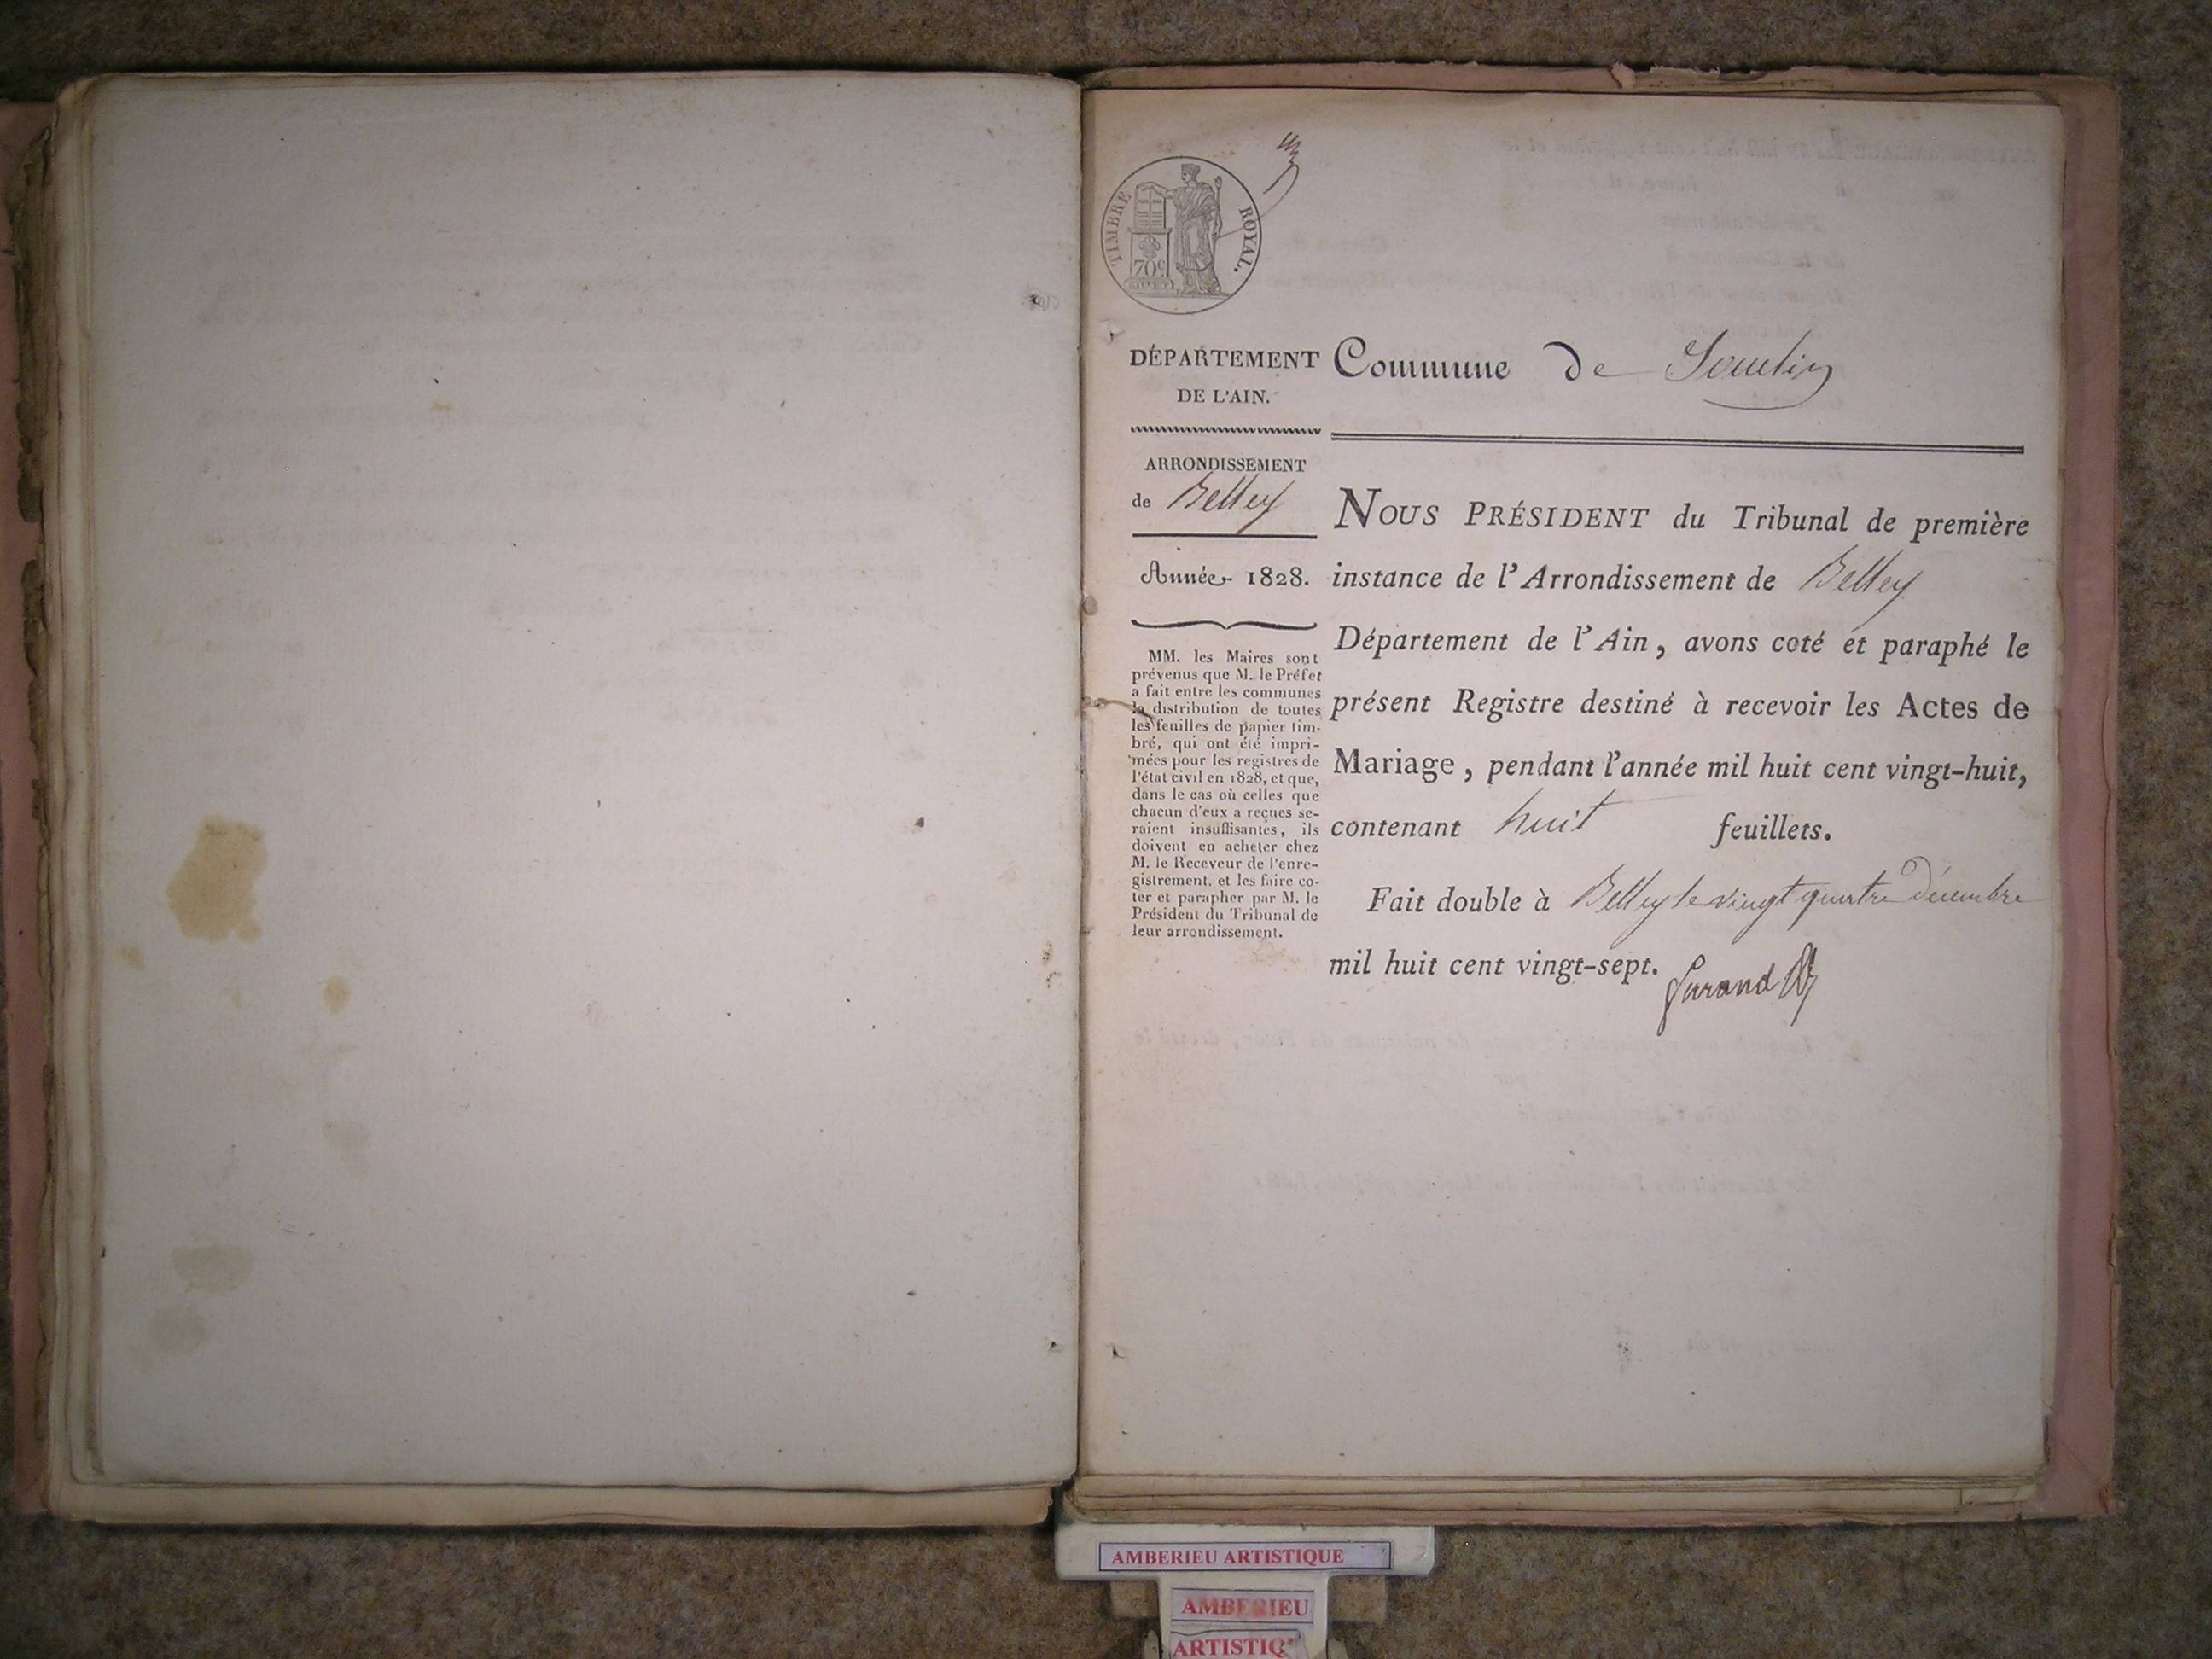 TIMBRE ROYAL.
70c
DÉPARTEMENT
DE L'AIN.
Commune de
ARRONDISSEMENT
de Belley
Année 1828.
MM. les Maires sont
prévenus que M. le Préfet
a fait entre les communes
la distribution de toutes
les feuilles de papier tim-
bré, qui ont été impri-
mées pour les registres de
l'état civil en 1828, et que,
dans le cas où celles que
chacun d'eux a reçues se-
raient insuffisantes, ils
doivent en acheter chez
M. le Receveur de l'enre-
gistrement, et les faire co-
ter et parapher par M. le
Président du Tribunal de
leur arrondissement.
NOUS PRÉSIDENT du Tribunal de première
instance de l'Arrondissement de Belley
Département de l'Ain, avons coté et paraphé le
présent Registre destiné à recevoir les Actes de
Mariage, pendant l'année mil huit cent vingt-huit,
contenant huit feuillets.
Fait double à Belley le vingt quatre décembre
mil huit cent vingt-sept.
AMBERIEU ARTISTIQUE
AMBERIEU
ARTISTIQ